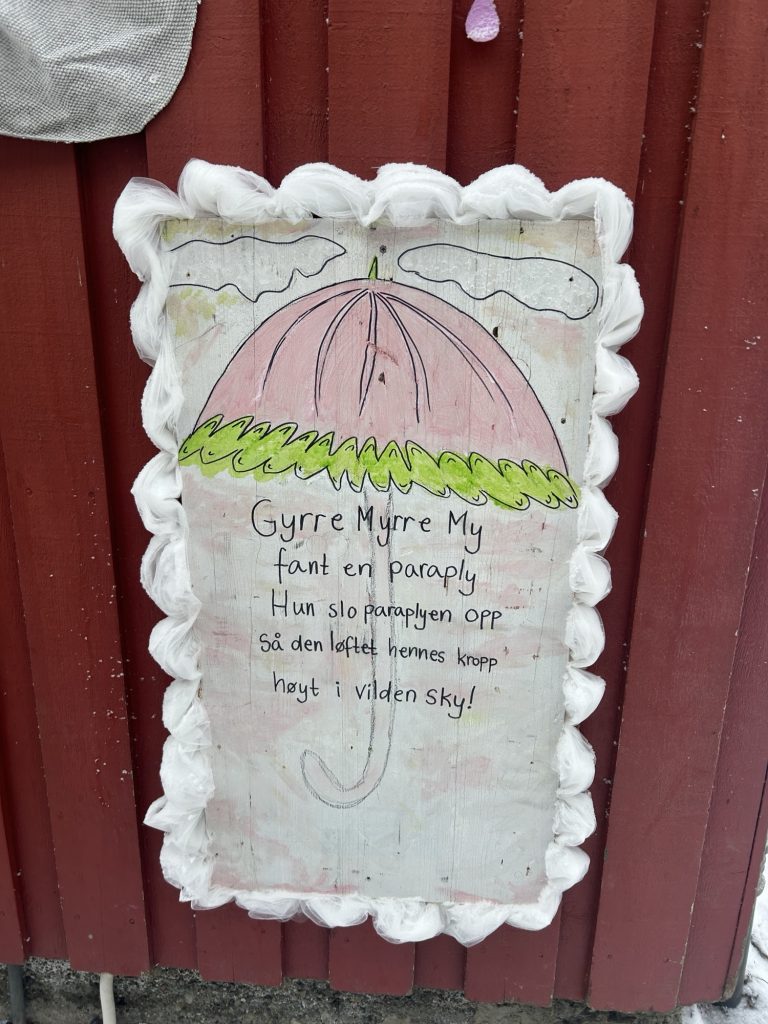 Gyrre Myrre My
fant en paraply
Hun slo paraplyen opp
Så den løftet hennes kropp
høyt i vilden sky!